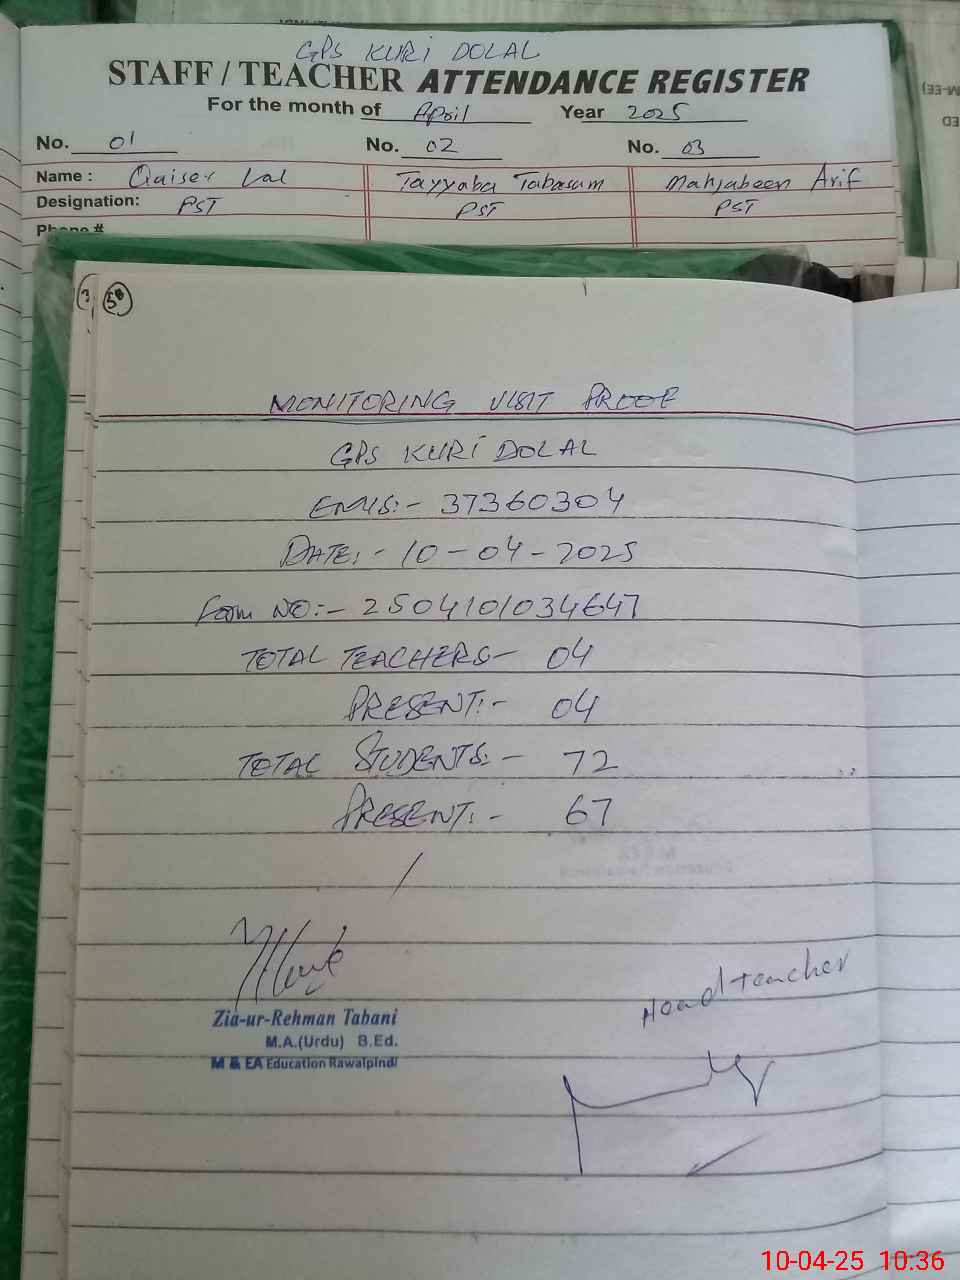 GPS KURI DOLAL
STAFF / TEACHER ATTENDANCE REGISTER
For the month of April Year 2025
No. 01 No. 02 No. 03
Name : Qaiser Lal Tayyaba Tabasum Mahjabeen Arif
Designation: PST PST PST
Phone #
58
MONITORING VISIT PROOF
GPS KURI DOLAL
EMIS:- 37360304
DATE:- 10-04-2025
Form NO:- 2504101034647
TOTAL TEACHERS- 04
PRESENT:- 04
TOTAL STUDENTS:- 72
PRESENT:- 67
Zia-ur-Rehman Tabani
M.A.(Urdu) B.Ed.
M & EA Education Rawalpindi
Head teacher
10-04-25 10:36